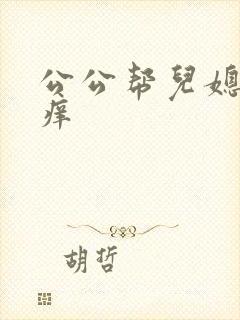 公公帮兒媳
痒
胡哲